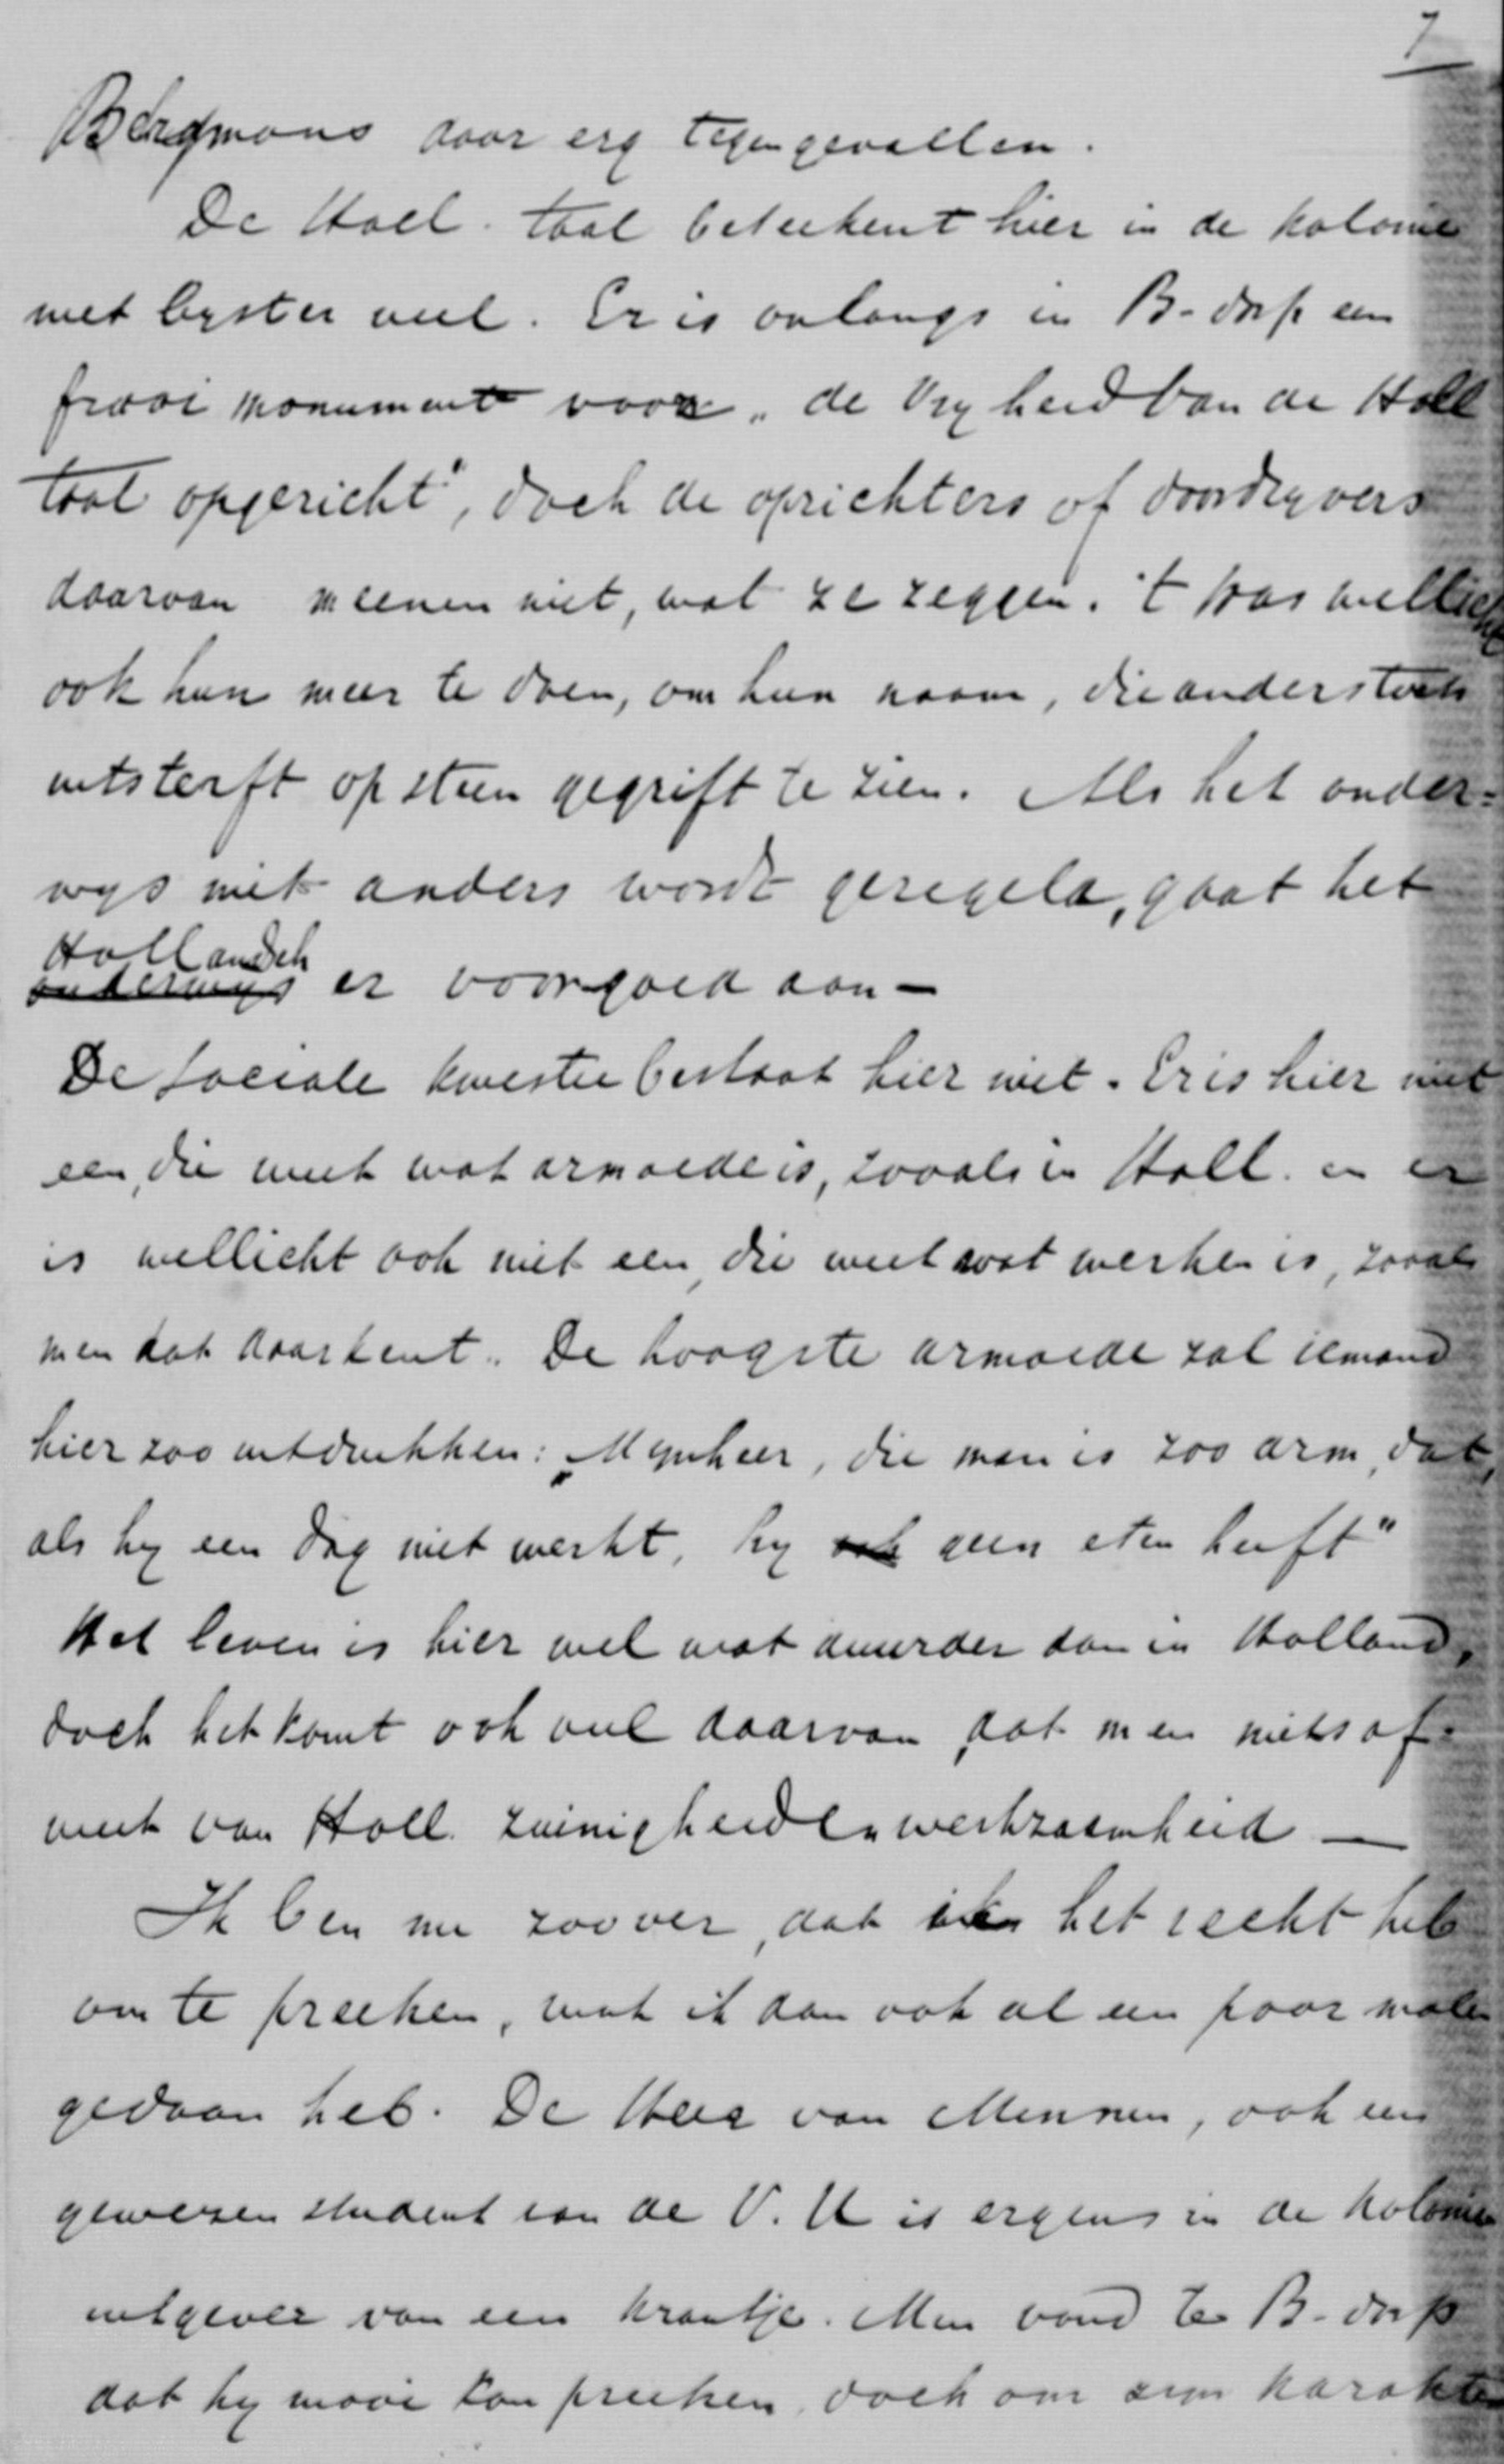 7
Bergmans daar erg tegengevallen.
De Holl. taal beteekent hier in de kolonie
niet byster veel. Er is onlangs in B-dorp een
fraai monument voor „de Vryheid van de Holl
taal opgericht", doch de oprichters of doordryvers
daarvan meenen niet, wat ze zeggen. 't Was wellicht
ook hun meer te doen, om hun naam, die anders toch
uitsterft op steen gegrift te zien. Als het onder=
wys niet anders wordt geregeld, gaat het
Hollandsch
onderwys er voorgoed aan —
De sociale kwestie bestaat hier niet. Er is hier niet
een, die weet wat armoede is, zooals in Holl. en er
is wellicht ook niet een, die weet wat werken is, zooals
men dat daar kent. De hoogste armoede zal iemand
hier zoo uitdrukken: „Mynheer, die man is zoo arm, dat,
als hy een dag niet werkt, hy ook geen eten heeft"
Het leven is hier wel wat duurder dan in Holland,
doch het komt ook veel daarvan dat men niets af=
weet van Holl. zuinigheid en werkzaamheid —
Ik ben nu zoover, dat ik het recht heb
om te preeken, wat ik dan ook al een paar malen
gedaan heb. De Heer van Mennen, ook een
gewezen student van de V. U is ergens in de kolonie
uitgever van een krantje. Men vond te B-dorp
dat hy mooi kon preeken, doch om zyn karakter